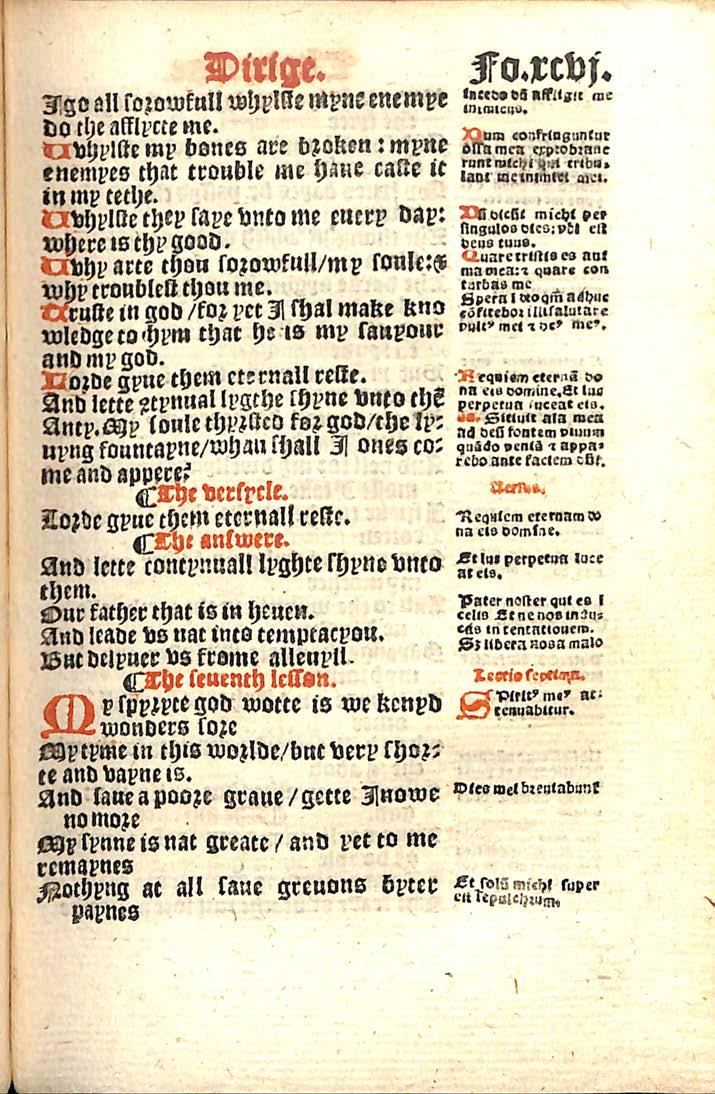 Dirige.
Fo.xcvj.
I go all sorowfull whylste myne enemye
do the afflycte me.
Whylste my bones are broken : myne
enemyes that trouble me haue caste it
in my tethe.
Whylste they saye vnto me euery day:
where is thy good.
Why arte thou sorowfull/my soule:&
why troublest thou me.
Truste in god /for yet I shal make kno
wledge to hym that he is my sauyour
and my god.
Lorde gyue them eternall reste.
And lette ztynual lygthe shyne vnto thē
Anty. My soule thyrsted for god/the ly-
uyng fountayne/whan shall I ones co-
me and appere?
¶The versycle.
Lorde gyue them eternall reste.
¶The answere.
And lette contynuall lyghte shyne vnto
them.
Our father that is in heuen.
And leade vs nat into temptacyon.
But delyuer vs frome alleuyll.
¶The seuenth lesson.
My spyryte god wotte is we kenyd
wonders sore
My tyme in this worlde/but very shor-
te and vayne is.
And saue a poore graue /gette I nowe
no more
My synne is nat greate / and yet to me
remaynes
Nothyng at all saue greuons byter
paynes
incedo dū affligit me
inimicus.
Dum confringuntur
ossa mea exprobraue
runt michi qui tribu-
lant me inimici mei.
Dū dicūt michi per
singulos dies: vbi est
deus tuus.
Quare tristis es ani
ma mea: ⁊ quare con
turbas me
Spera ī deo qm̄ adhuc
cōfitebor illi salutare
vult⁹ mei ⁊ de⁹ me⁹.
Requiem eternā do
na eis domine. Et lux
perpetua luceat eis.
Sitiuit aīa mea
ad deū fontem viuum
quādo veniā ⁊ appa-
rebo ante faciem
Versus.
Requiem eternam do
na eis domine.
Et lux perpetua luce
at eis.
Pater noster qui es ī
celis Et ne nos induc-
cas in tentationem.
Sz libera nosa malo
Lectio septima.
Spirit⁹ me⁹ at-
tenuabitur.
Dies mei breuiabunt
Et solū michi super
est sepulchrum,